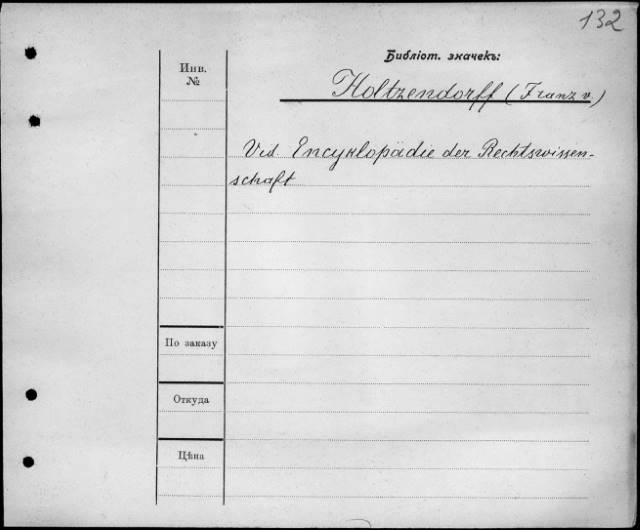 132
Библіот. значекъ:
Инв.
№
Holtzendorff (Franz v.)
Vid. Encyklopädie der Rechtswissen-
schaft
По заказу
Откуда
Цѣна